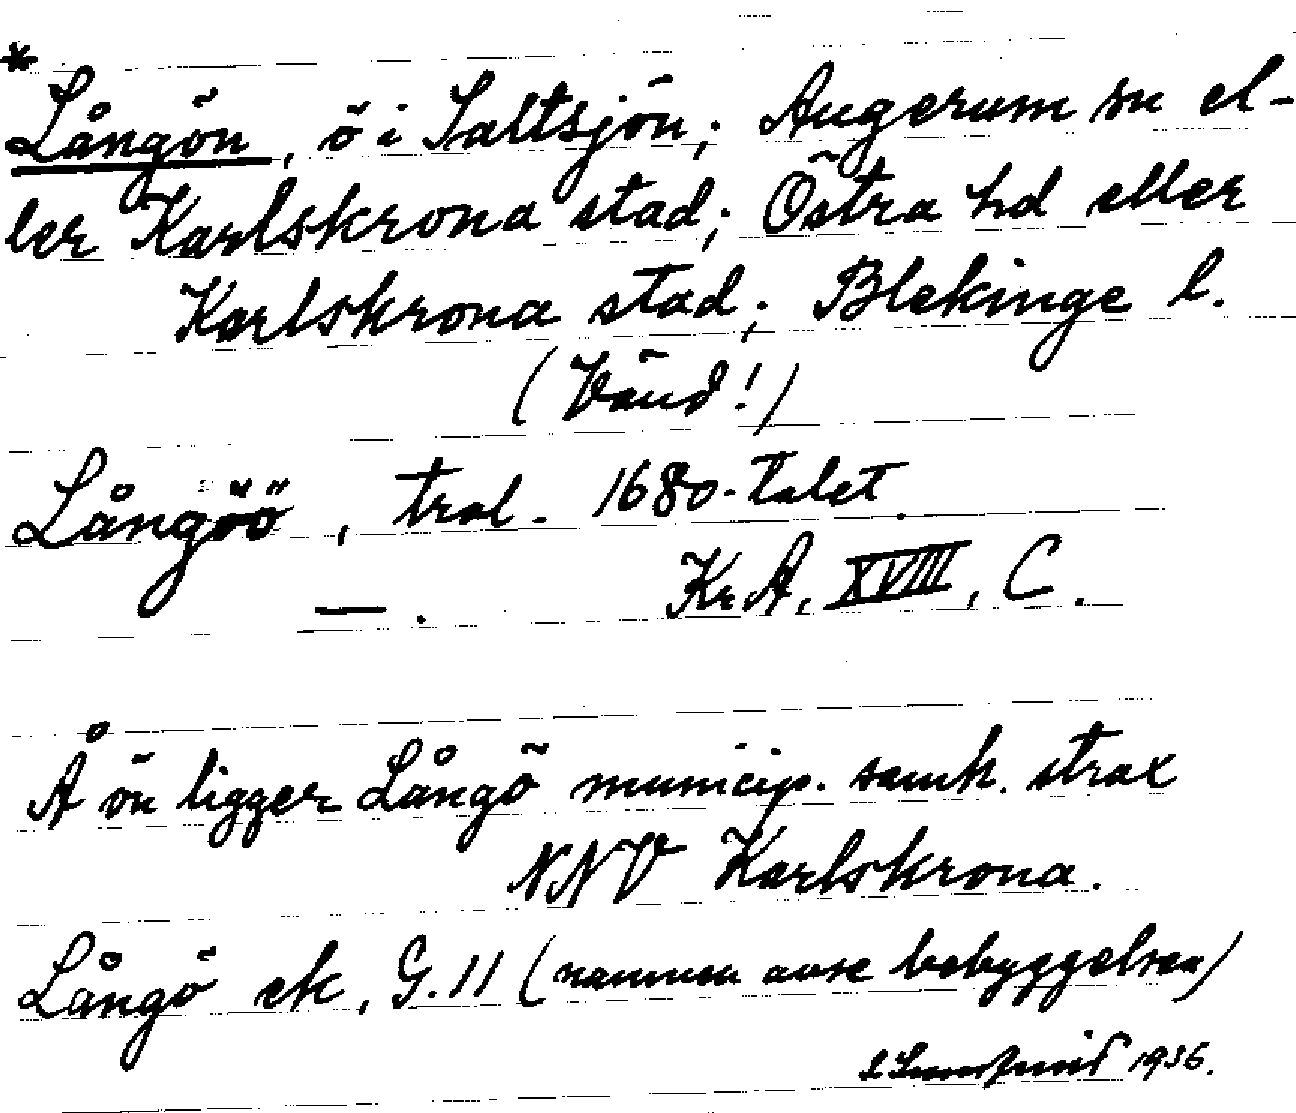 *
Långön, ö i Saltsjön; Augerum sn el-
ler Karlskrona stad; Östra hd eller
Karlskrona stad; Blekinge l.
(Vänd!)
Långöö, trol. 1680-talet.
KrA, XVIII, C.
— .
Å ön ligger Långö municip. samh. strax
NNV Karlskrona.
Långö ek, G. 11 (namnen avse bebyggelsen)
1936.